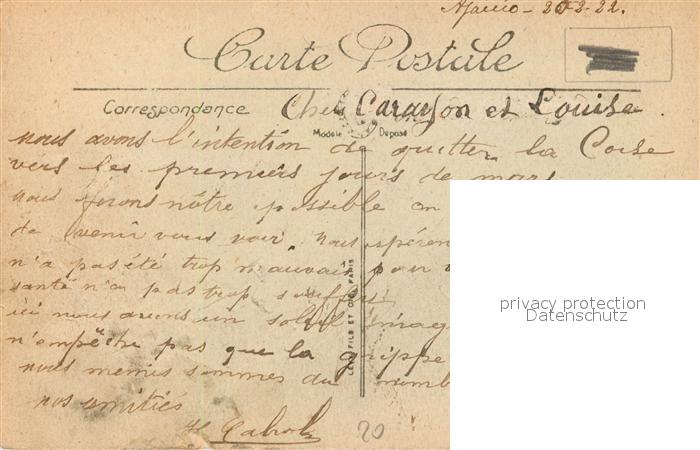 Ajaccio - 20-2-22.
Carte Postale
Correspondance
Chers Carayon et Louise
Modèle Déposé
nous avons l'intention de quitter la Corse
vers les premiers jours de mars
nous ferons nôtre possible
de venir vous voir. Nous espéren
n'a pas été trop mauvais pour
santé n'a pas trop souffert
ici nous avons un soleil mag
n'empêche pas que la grippe
nous mêmes sommes du nomb
nos amitiés
LEVY FILS ET CIE PARIS
20
privacy protection
Datenschutz